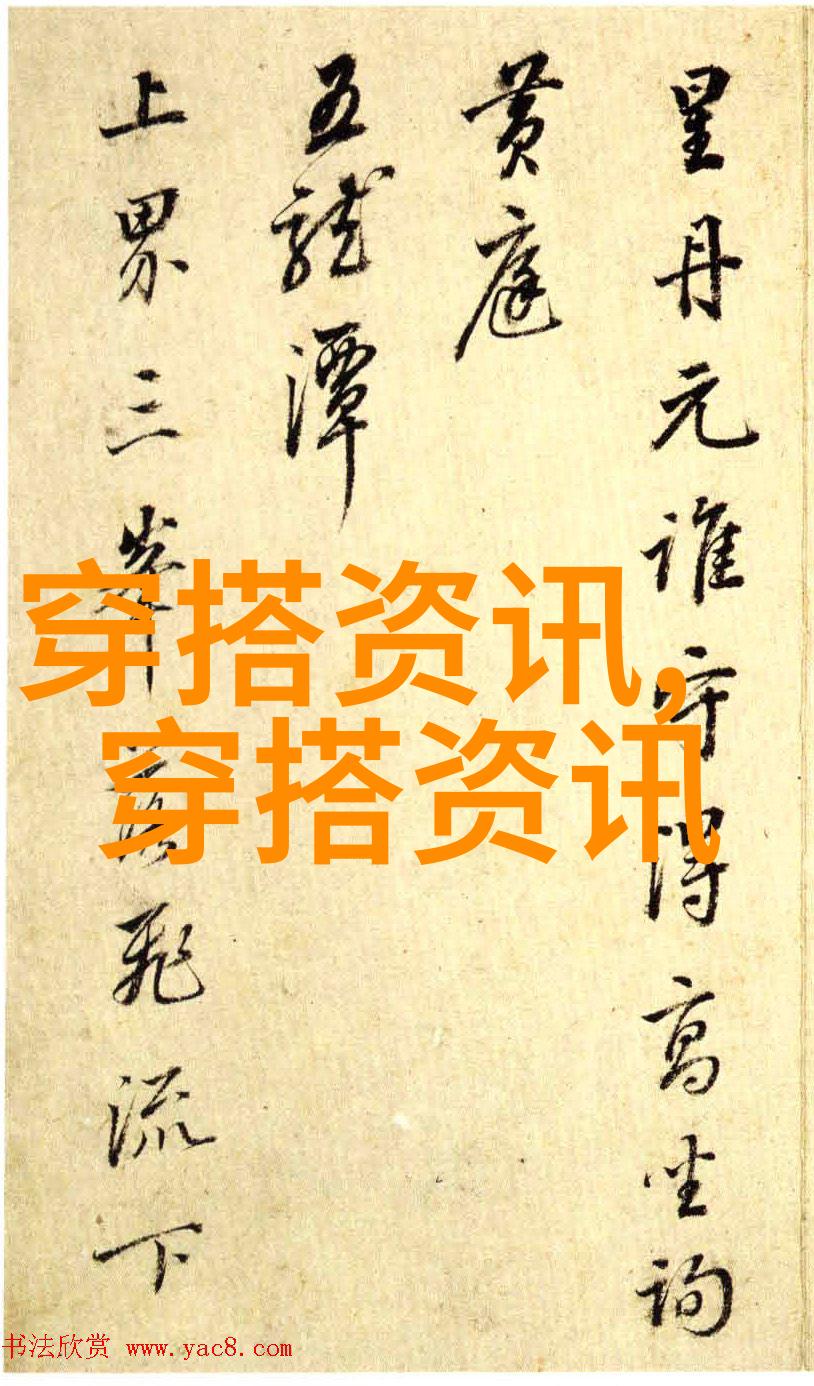 星丹元谁守得高坐詢
黄庭
五龍潭
上界三峯落飛流下
穿搭资讯,
穿搭资讯
书法欣赏 www.yac8.com